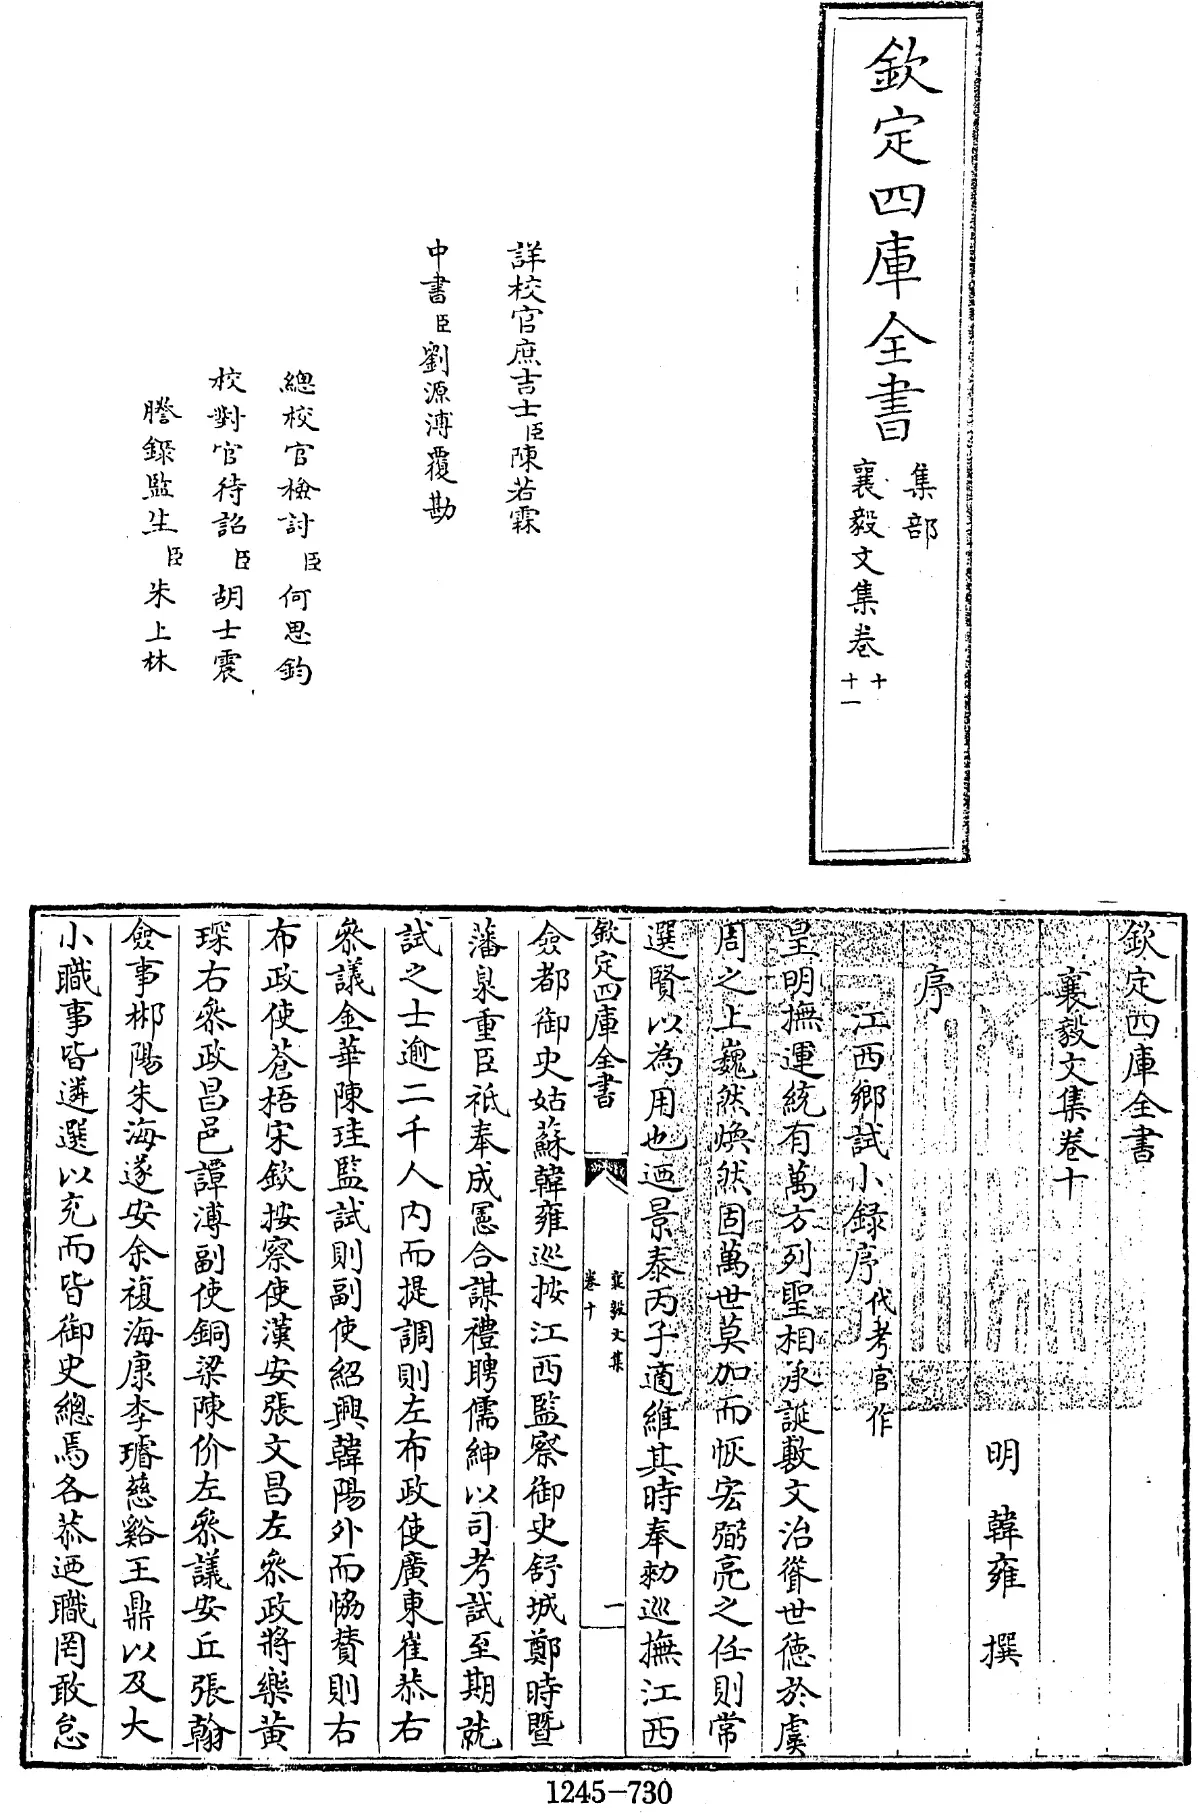 欽定四庫全書
集部
襄毅文集卷
十
十一
詳校官庶吉士臣陳若霖
中書臣劉源溥覆勘
總校官檢討臣何思鈞
校對官待詔臣胡士震
謄錄監生臣朱上林
欽定四庫全書
襄毅文集卷十
明 韓雍 撰
序
江西鄉試小録序代考官作
皇明撫運統有萬方列聖相承誕敷文治躋世徳於虞
周之上巍然煥然固萬世莫加而恢宏弼亮之任則常
選賢以為用也廼景泰丙子適維其時奉勅巡撫江西
欽定四庫全書
襄毅文集
卷十
一
僉都御史姑蘇韓雍巡按江西監察御史舒城鄭時暨
藩臬重臣祇奉成憲合謀禮聘儒紳以司考試至期就
試之士逾二千人内而提調則左布政使廣東崔恭右
叅議金華陳珪監試則副使紹興韓陽外而恊賛則右
布政使蒼梧宋欽按察使漢安張文昌左叅政將樂黄
琛右叅政昌邑譚溥副使銅梁陳价左叅議安丘張翰
僉事郴陽朱海遂安余複海康李璿慈谿王鼎以及大
小職事皆遴選以充而皆御史總焉各恭廼職罔敢怠
1245-730